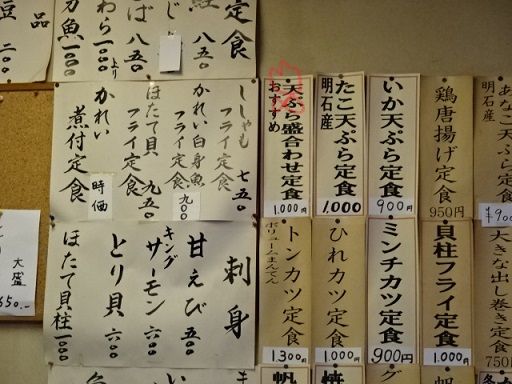 定食
鮭
八五〇
ば 八五〇
わら 一〇〇〇より
カ魚 一〇〇〇
一品
豆 二〇〇
ししゃもフライ定食 七五〇
かれい白身魚フライ定食 九〇〇
ほたて貝フライ定食 九五〇
かれい煮付定食 時価
大盛
650.-
刺身
甘えび 五〇〇
キングサーモン 六〇〇
とり貝 六〇〇
ほたて貝柱 一〇〇〇
天ぷら盛合わせ定食
おすすめ
1.000円
たこ天ぷら定食
明石産
1,000
いか天ぷら定食
900円
鶏唐揚げ定食
950円
あなご天ぷら定食
明石産
¥900
トンカツ定食
ボリュームまんてん
1.300円
ひれカツ定食
1.000円
ミンチカツ定食
900円
貝柱フライ定食
1.000円
大きな出し巻き定食
750円
帆